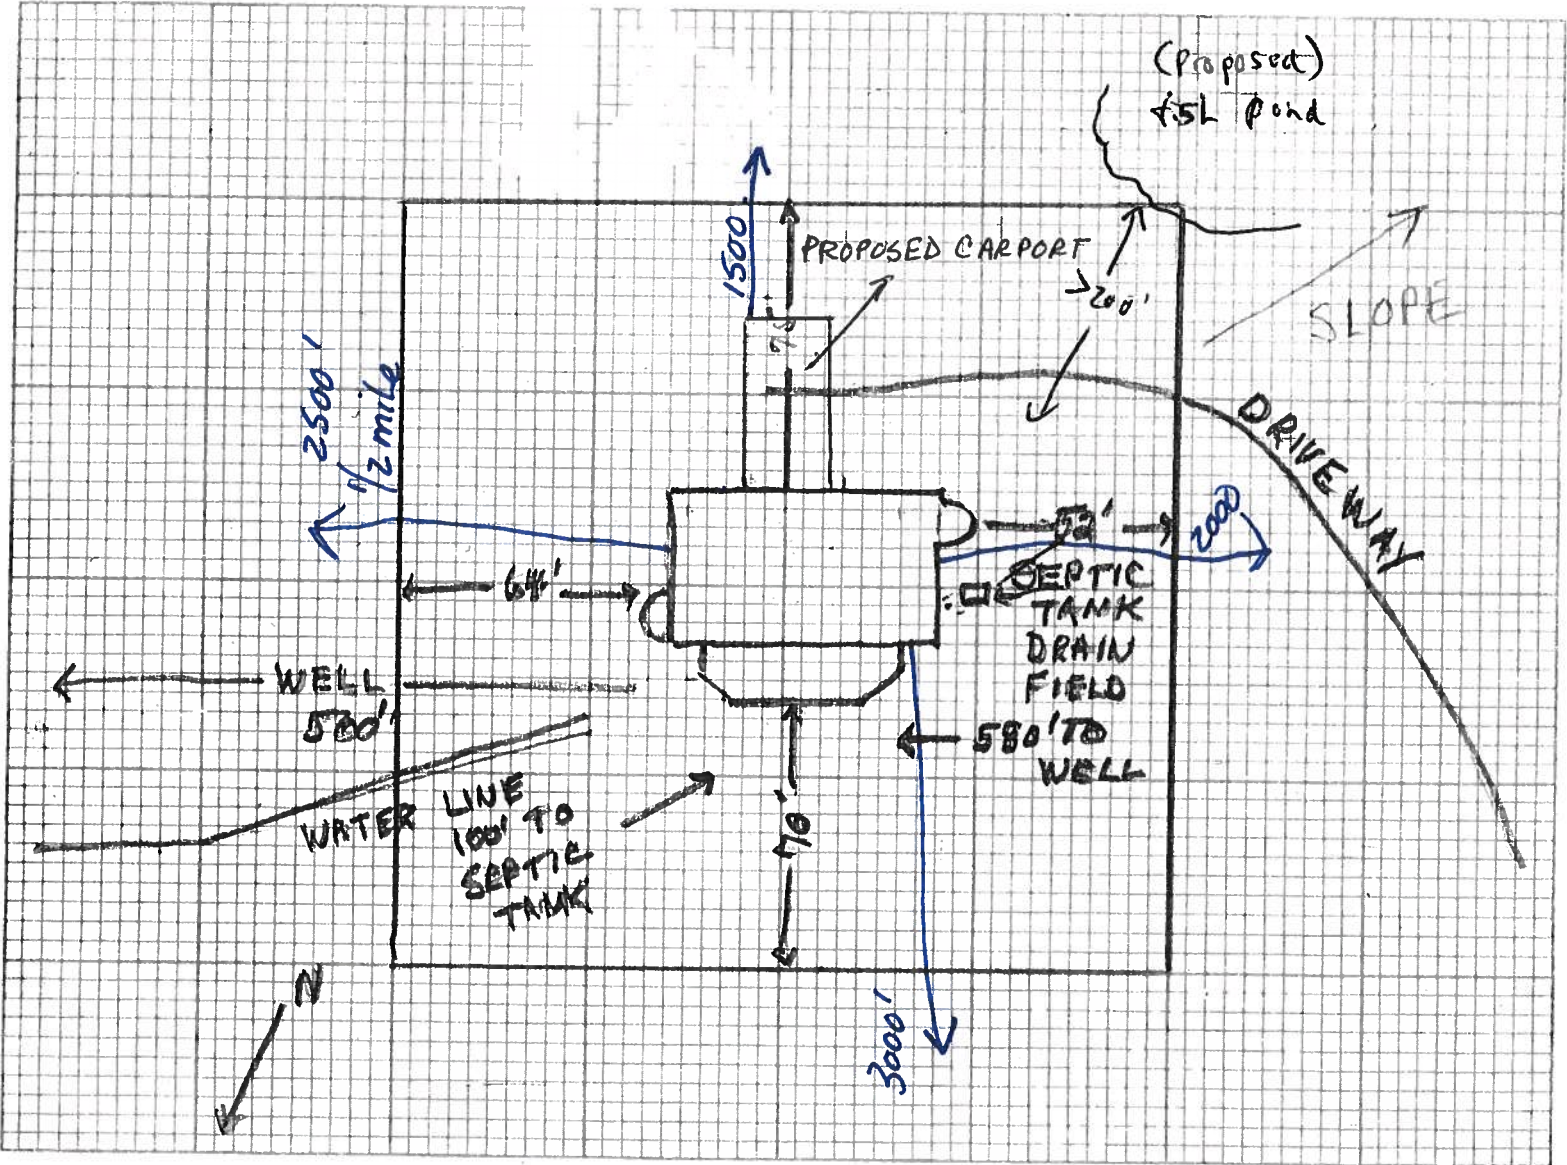 (Proposed)
pond
1500
PROPOSED CARPORT
>200'
SLOPE
2500'
1/2 mile
DRIVEWAY
52'
2000
64'
SEPTIC
TANK
DRAIN
FIELD
WELL
500'
580' TO
WELL
WATER LINE
100' TO
SEPTIC
TANK
70'
N
3000'